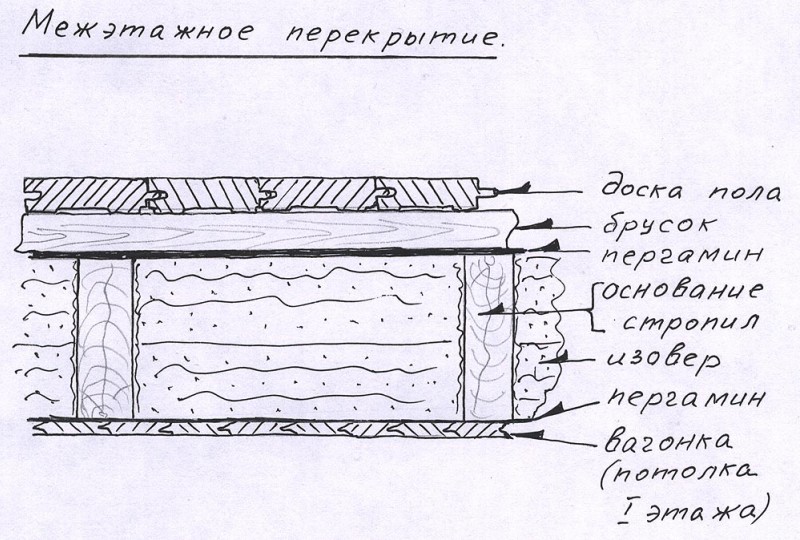 Межэтажное перекрытие.
доска пола
брусок
пергамин
основание
стропил
изовер
пергамин
вагонка
(потолка
I этажа)